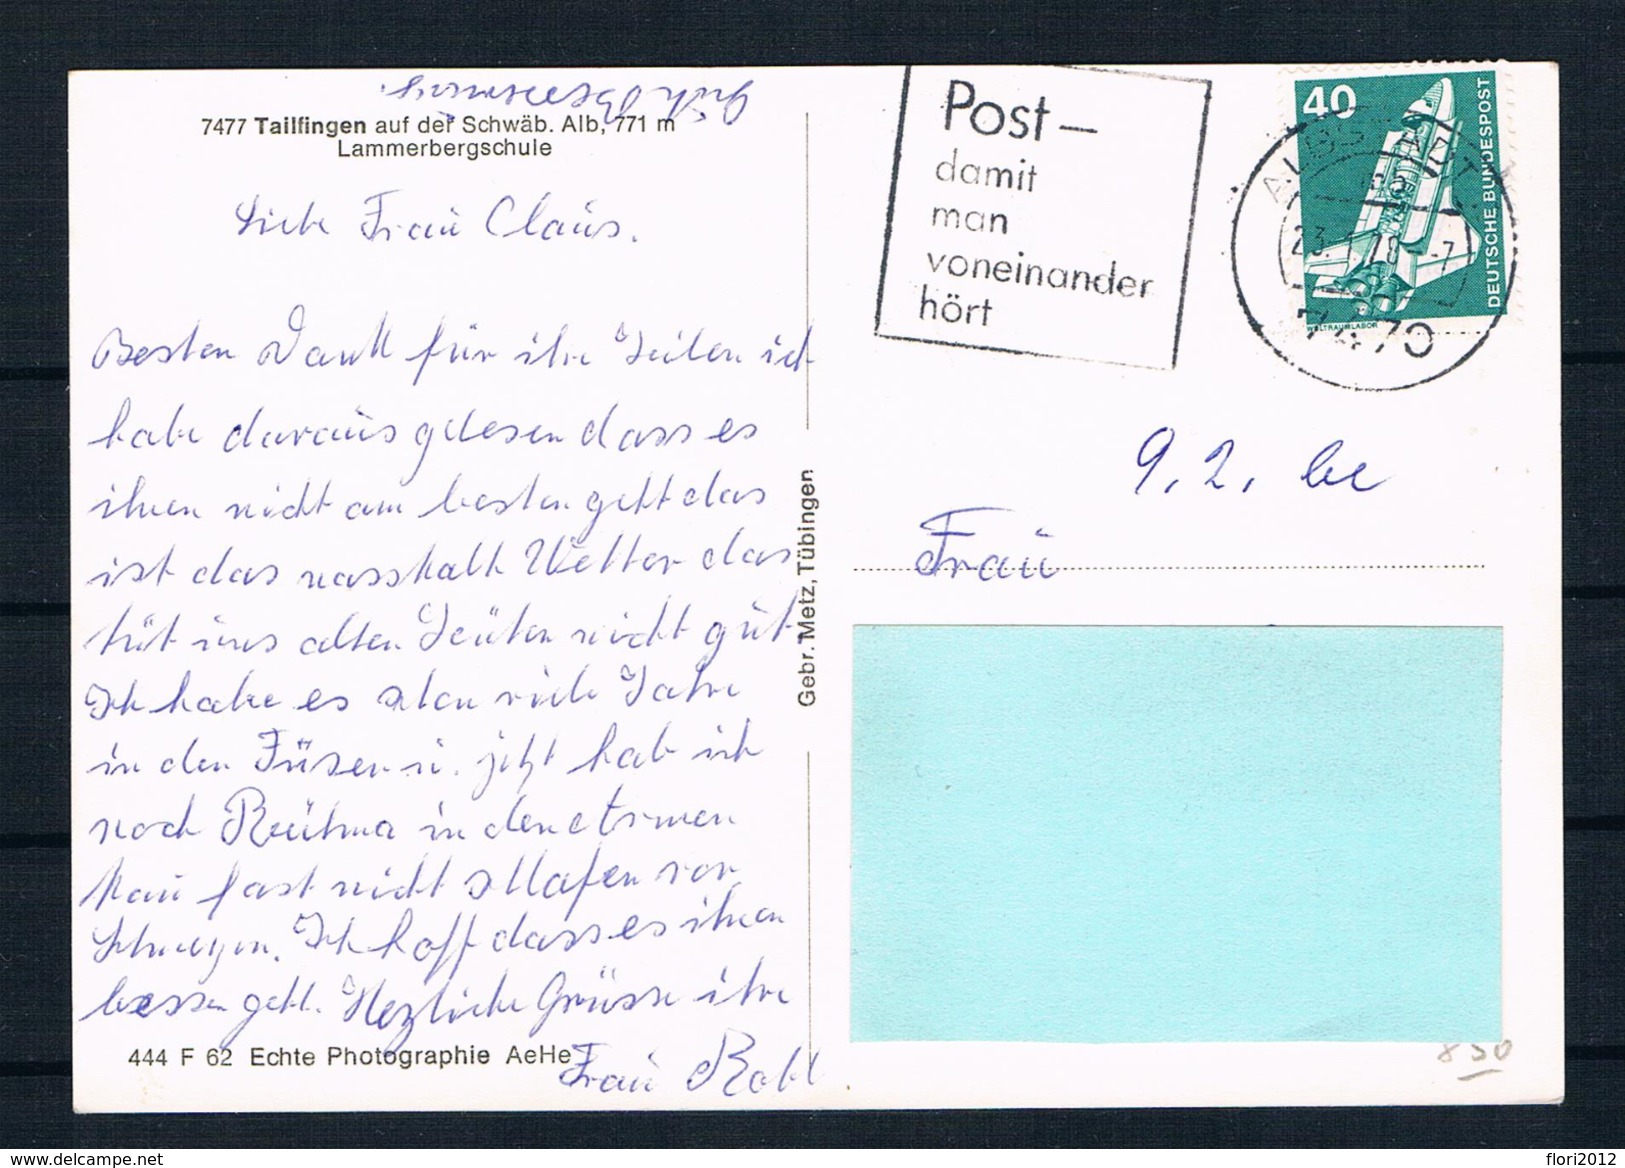 7477 Tailfingen auf der Schwäb. Alb, 771 m
Lammerbergschule
Liebe Frau Claus.
Besten Dank für ihre Zeilen ich
habe daraus gelesen dass es
ihnen nicht am besten geht das
ist das nasskalte Wetter das
tut uns alten Leuten nicht gut
Ich habe es schon viele Jahre
in den Füsen u. jetzt hab ich
noch Reühma in den armen
kan fast nicht schlafen vor
Schmerzen. Ich hoff dass es ihnen
besser geht. Herzliche Grüsse ihre
Frau
444 F 62 Echte Photographie AeHe
Gebr. Metz, Tübingen
Post –
damit
man
voneinander
hört
ALBSTADT
7470
40
DEUTSCHE BUNDESPOST
WELTRAUMLABOR
9.2. be
Frau
8 50
www.delcampe.net
flori2012